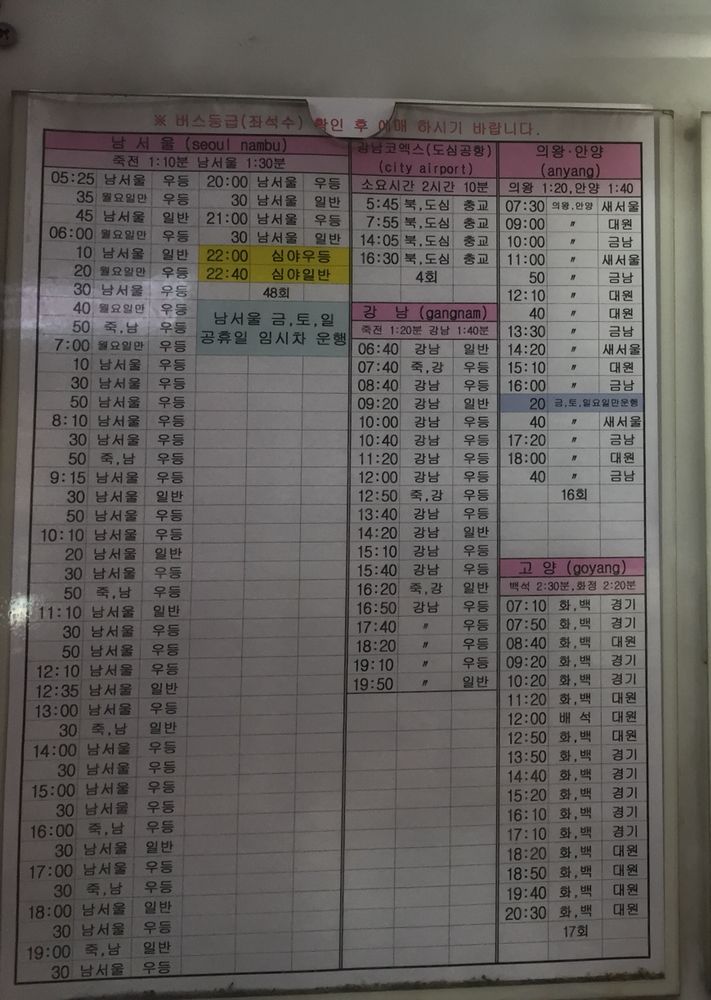 ※ 버스등급(좌석수) 확인 후 예매 하시기 바랍니다.
남 서 울 (seoul nambu)
죽전 1:10분 남서울 1:30분
05:25 남서울 우등
35 월요일만 우등
45 남서울 일반
06:00 월요일만 우등
10 남서울 일반
20 월요일만 우등
30 남서울 우등
40 월요일만 우등
50 죽,남 우등
7:00 월요일만 우등
10 남서울 우등
30 남서울 우등
50 남서울 우등
8:10 남서울 우등
30 남서울 우등
50 죽,남 우등
9:15 남서울 우등
30 남서울 일반
50 남서울 우등
10:10 남서울 우등
20 남서울 일반
30 남서울 우등
50 죽,남 우등
11:10 남서울 일반
30 남서울 우등
50 남서울 우등
12:10 남서울 우등
12:35 남서울 일반
13:00 남서울 우등
30 죽,남 일반
14:00 남서울 우등
30 남서울 우등
15:00 남서울 우등
30 남서울 우등
16:00 죽,남 우등
30 남서울 일반
17:00 남서울 우등
30 죽,남 우등
18:00 남서울 일반
30 남서울 우등
19:00 죽,남 일반
30 남서울 우등
20:00 남서울 우등
30 남서울 일반
21:00 남서울 우등
30 남서울 일반
22:00 심야우등
22:40 심야일반
48회
남서울 금,토,일
공휴일 임시차 운행
강남코엑스(도심공항)
(city airport)
소요시간 2시간 10분
5:45 북,도심 충교
7:55 북,도심 충교
14:05 북,도심 충교
16:30 북,도심 충교
4회
강 남 (gangnam)
죽전 1:20분 강남 1:40분
06:40 강남 일반
07:40 죽,강 우등
08:40 강남 우등
09:20 강남 일반
10:00 강남 우등
10:40 강남 우등
11:20 강남 우등
12:00 강남 우등
12:50 죽,강 우등
13:40 강남 우등
14:20 강남 일반
15:10 강남 우등
15:40 강남 우등
16:20 죽,강 일반
16:50 강남 우등
17:40 〃 우등
18:20 〃 우등
19:10 〃 우등
19:50 〃 일반
의왕·안양
(anyang)
의왕 1:20,안양 1:40
07:30 의왕,안양 새서울
09:00 〃 대원
10:00 〃 금남
11:00 〃 새서울
50 〃 금남
12:10 〃 대원
40 〃 대원
13:30 〃 금남
14:20 〃 새서울
15:10 〃 대원
16:00 〃 금남
20 금,토,일요일만운행
40 〃 새서울
17:20 〃 금남
18:00 〃 대원
40 〃 금남
16회
고 양 (goyang)
백석 2:30분,화정 2:20분
07:10 화,백 경기
07:50 화,백 경기
08:40 화,백 대원
09:20 화,백 경기
10:20 화,백 경기
11:20 화,백 대원
12:00 배 석 대원
12:50 화,백 대원
13:50 화,백 경기
14:40 화,백 경기
15:20 화,백 경기
16:10 화,백 경기
17:10 화,백 경기
18:20 화,백 대원
18:50 화,백 대원
19:40 화,백 대원
20:30 화,백 대원
17회